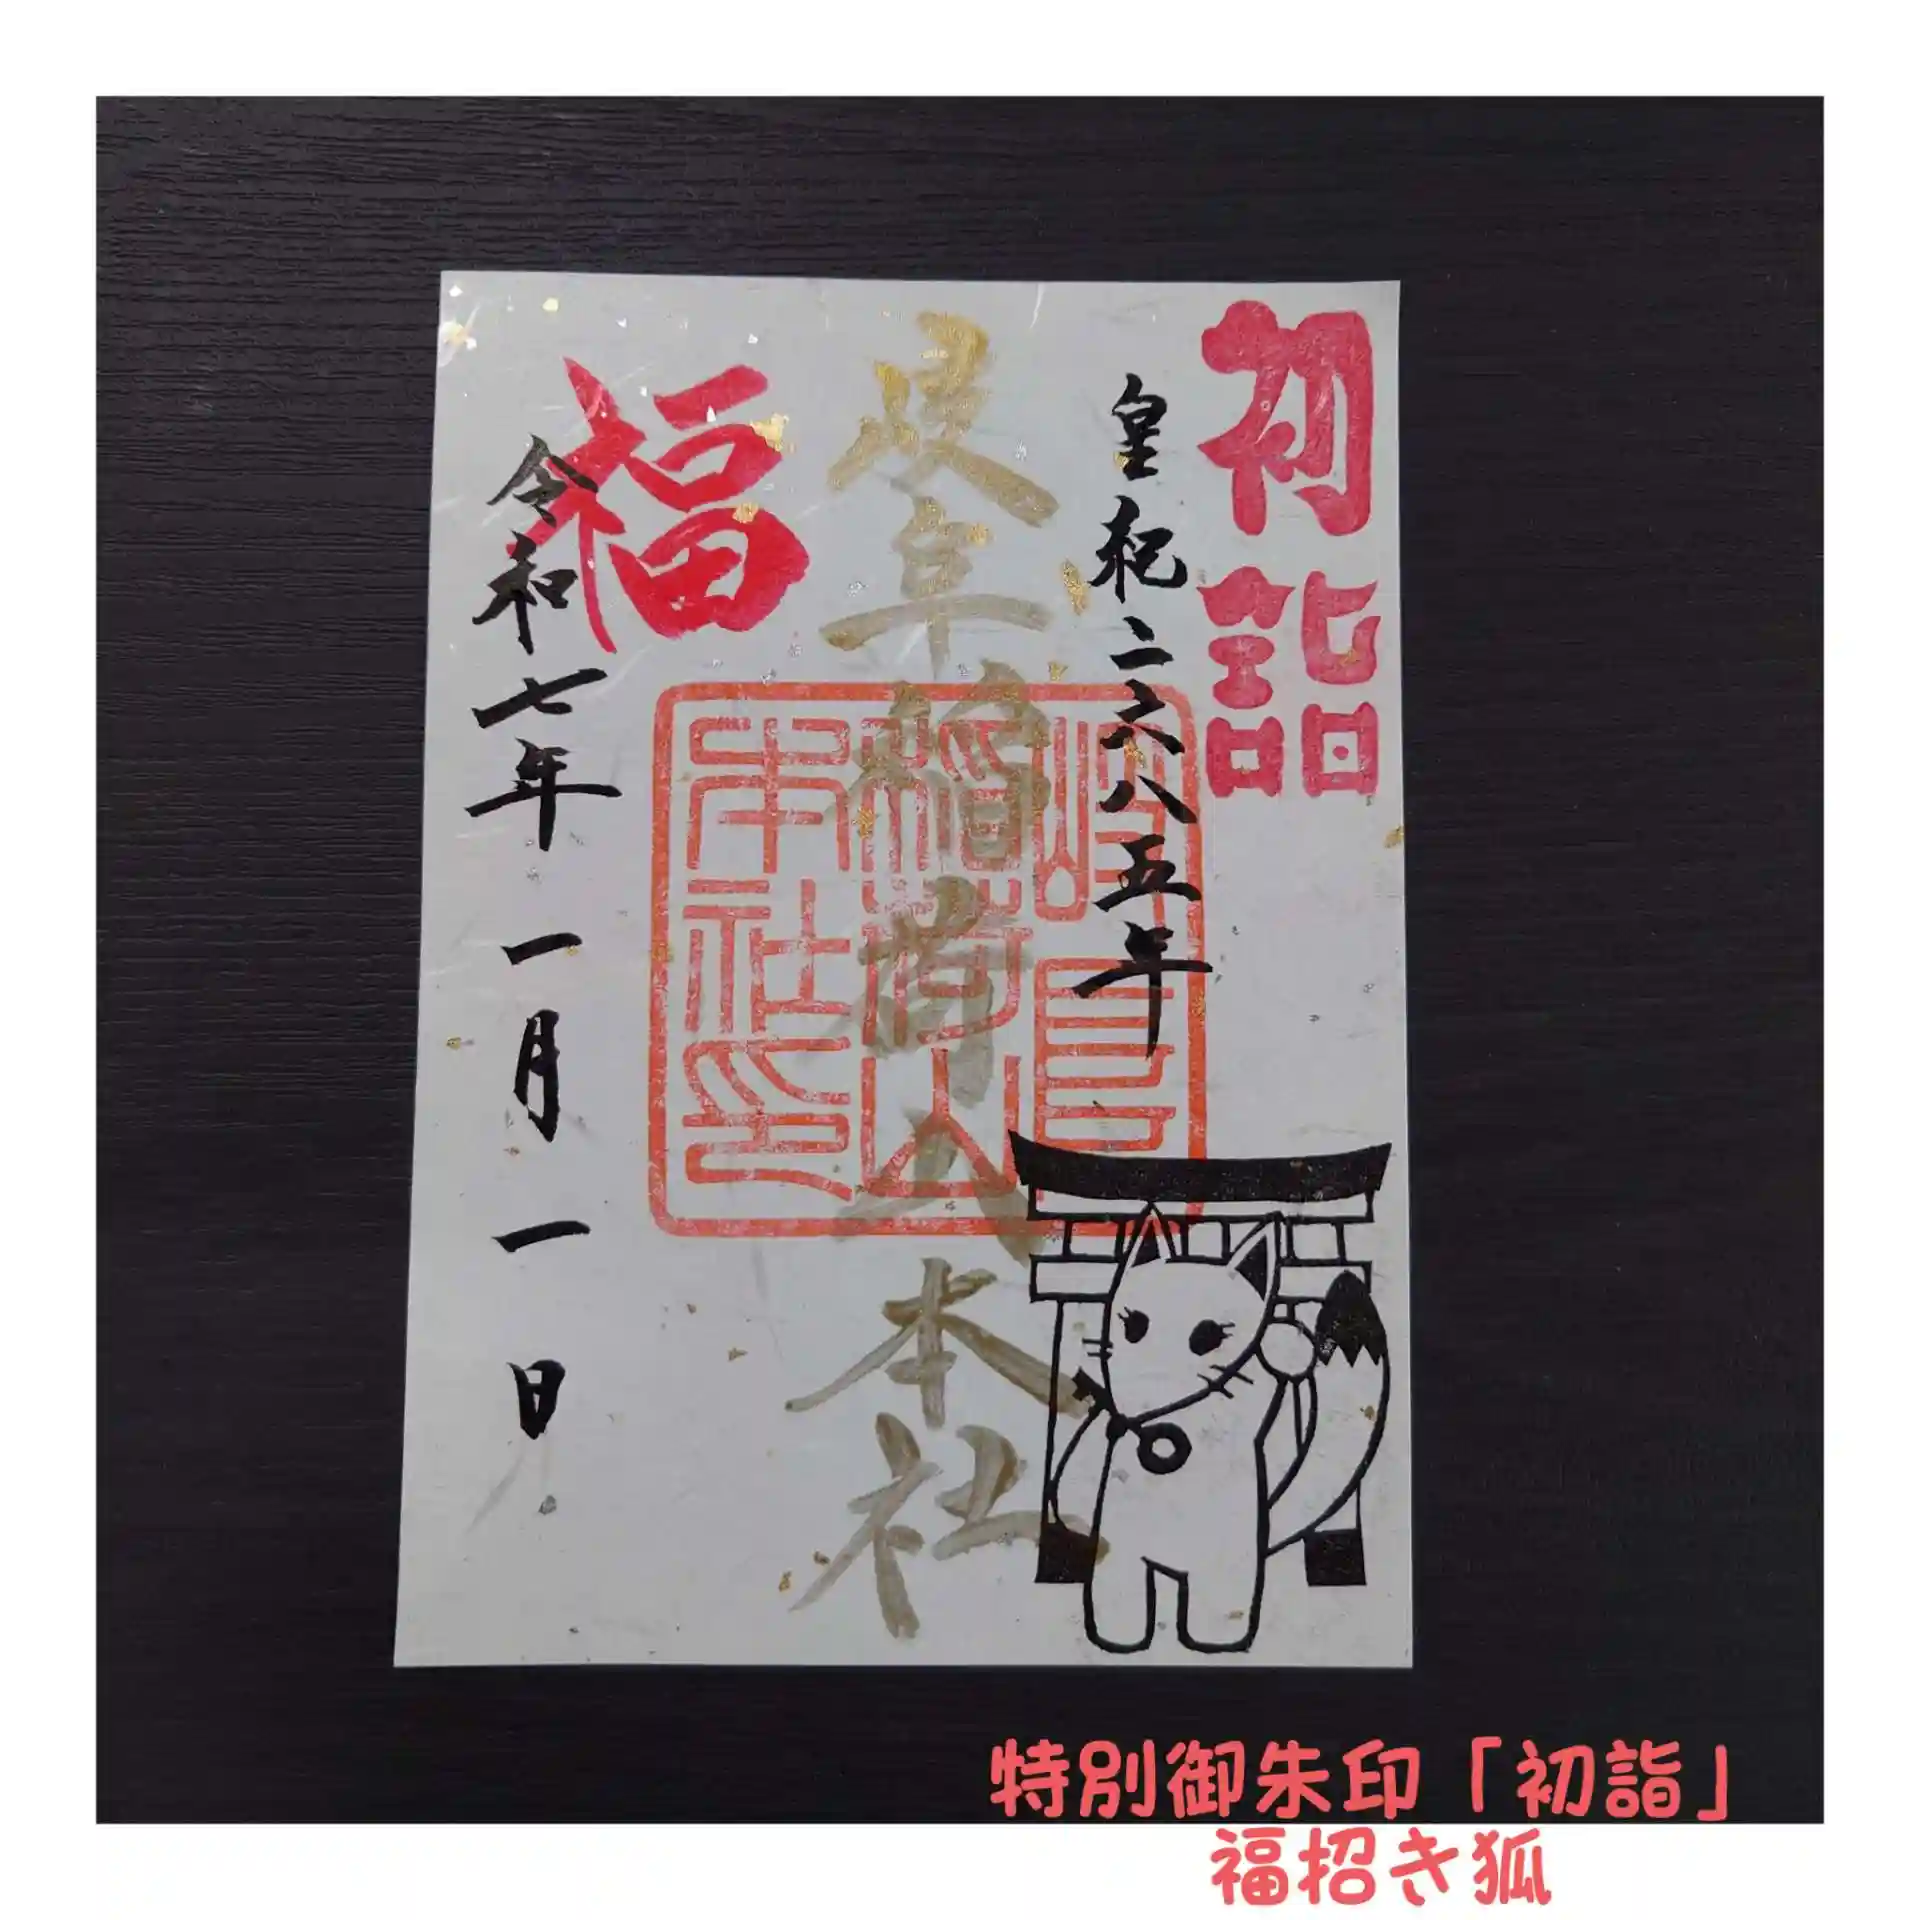 初詣
皇紀二六八五年
岐阜稲荷山本社
岐阜
稲荷山
本社印
福
令和七年一月一日
特別御朱印「初詣」
福招き狐